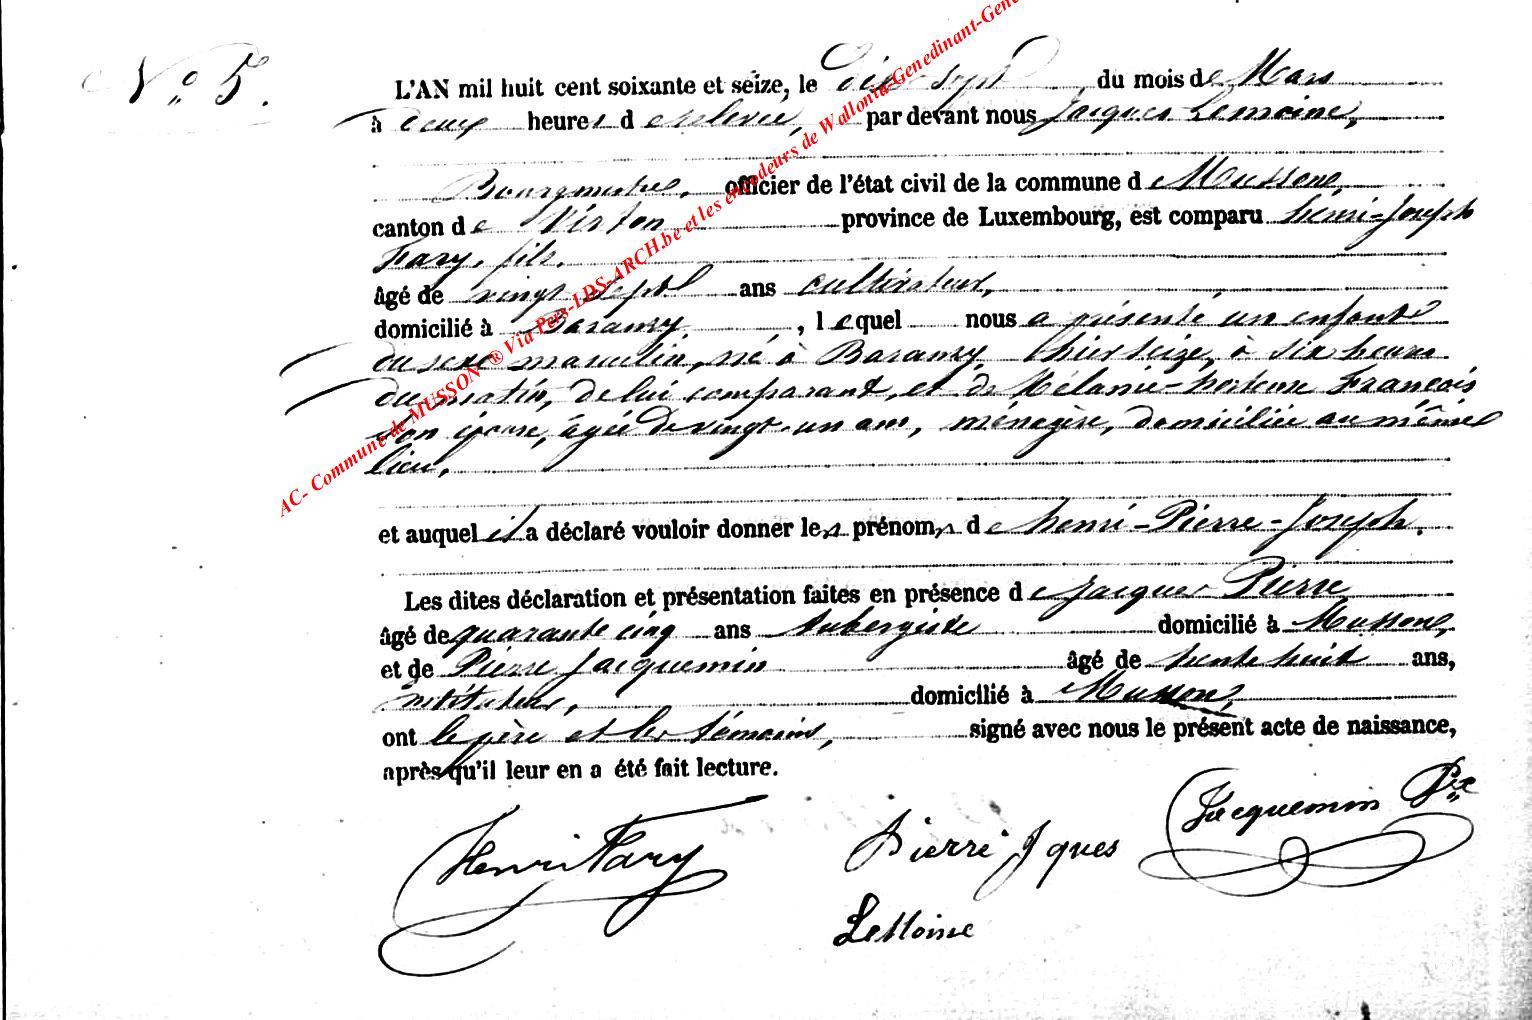 N° 5.
L'AN mil huit cent soixante et seize, le dix-sept du mois de Mars
à deux heures de relevée, par devant nous Jacques Lemoine,
Bourgmestre, officier de l'état civil de la commune de Musson,
canton de Virton province de Luxembourg, est comparu Henri-Joseph
fils,
âgé de vingt-sept ans cultivateur,
domicilié à Baranzy, lequel nous a présenté un enfant
du sexe masculin, né à Baranzy, hier seize, à six heures
du matin, de lui comparant, et de Mélanie-Hortense François
son épouse, âgée de vingt-un ans, ménagère, domiciliée au même
lieu,
et auquel il a déclaré vouloir donner les prénoms de Henri-Pierre-Joseph.
Les dites déclaration et présentation faites en présence de Jacques Pierre
âgé de quarante cinq ans Aubergiste domicilié à Musson,
et de Pierre Jacquemin âgé de trente huit ans,
instituteur, domicilié à Musson,
ont le père et les témoins, signé avec nous le présent acte de naissance,
après qu'il leur en a été fait lecture.
Henri
Pierre Jques
Jacquemin Pre
LeMoine
AC- Commune de MUSSON ® Via Pers-LDS-ARCH.be et les encodeurs de Wallonia-Genedinant-Gene